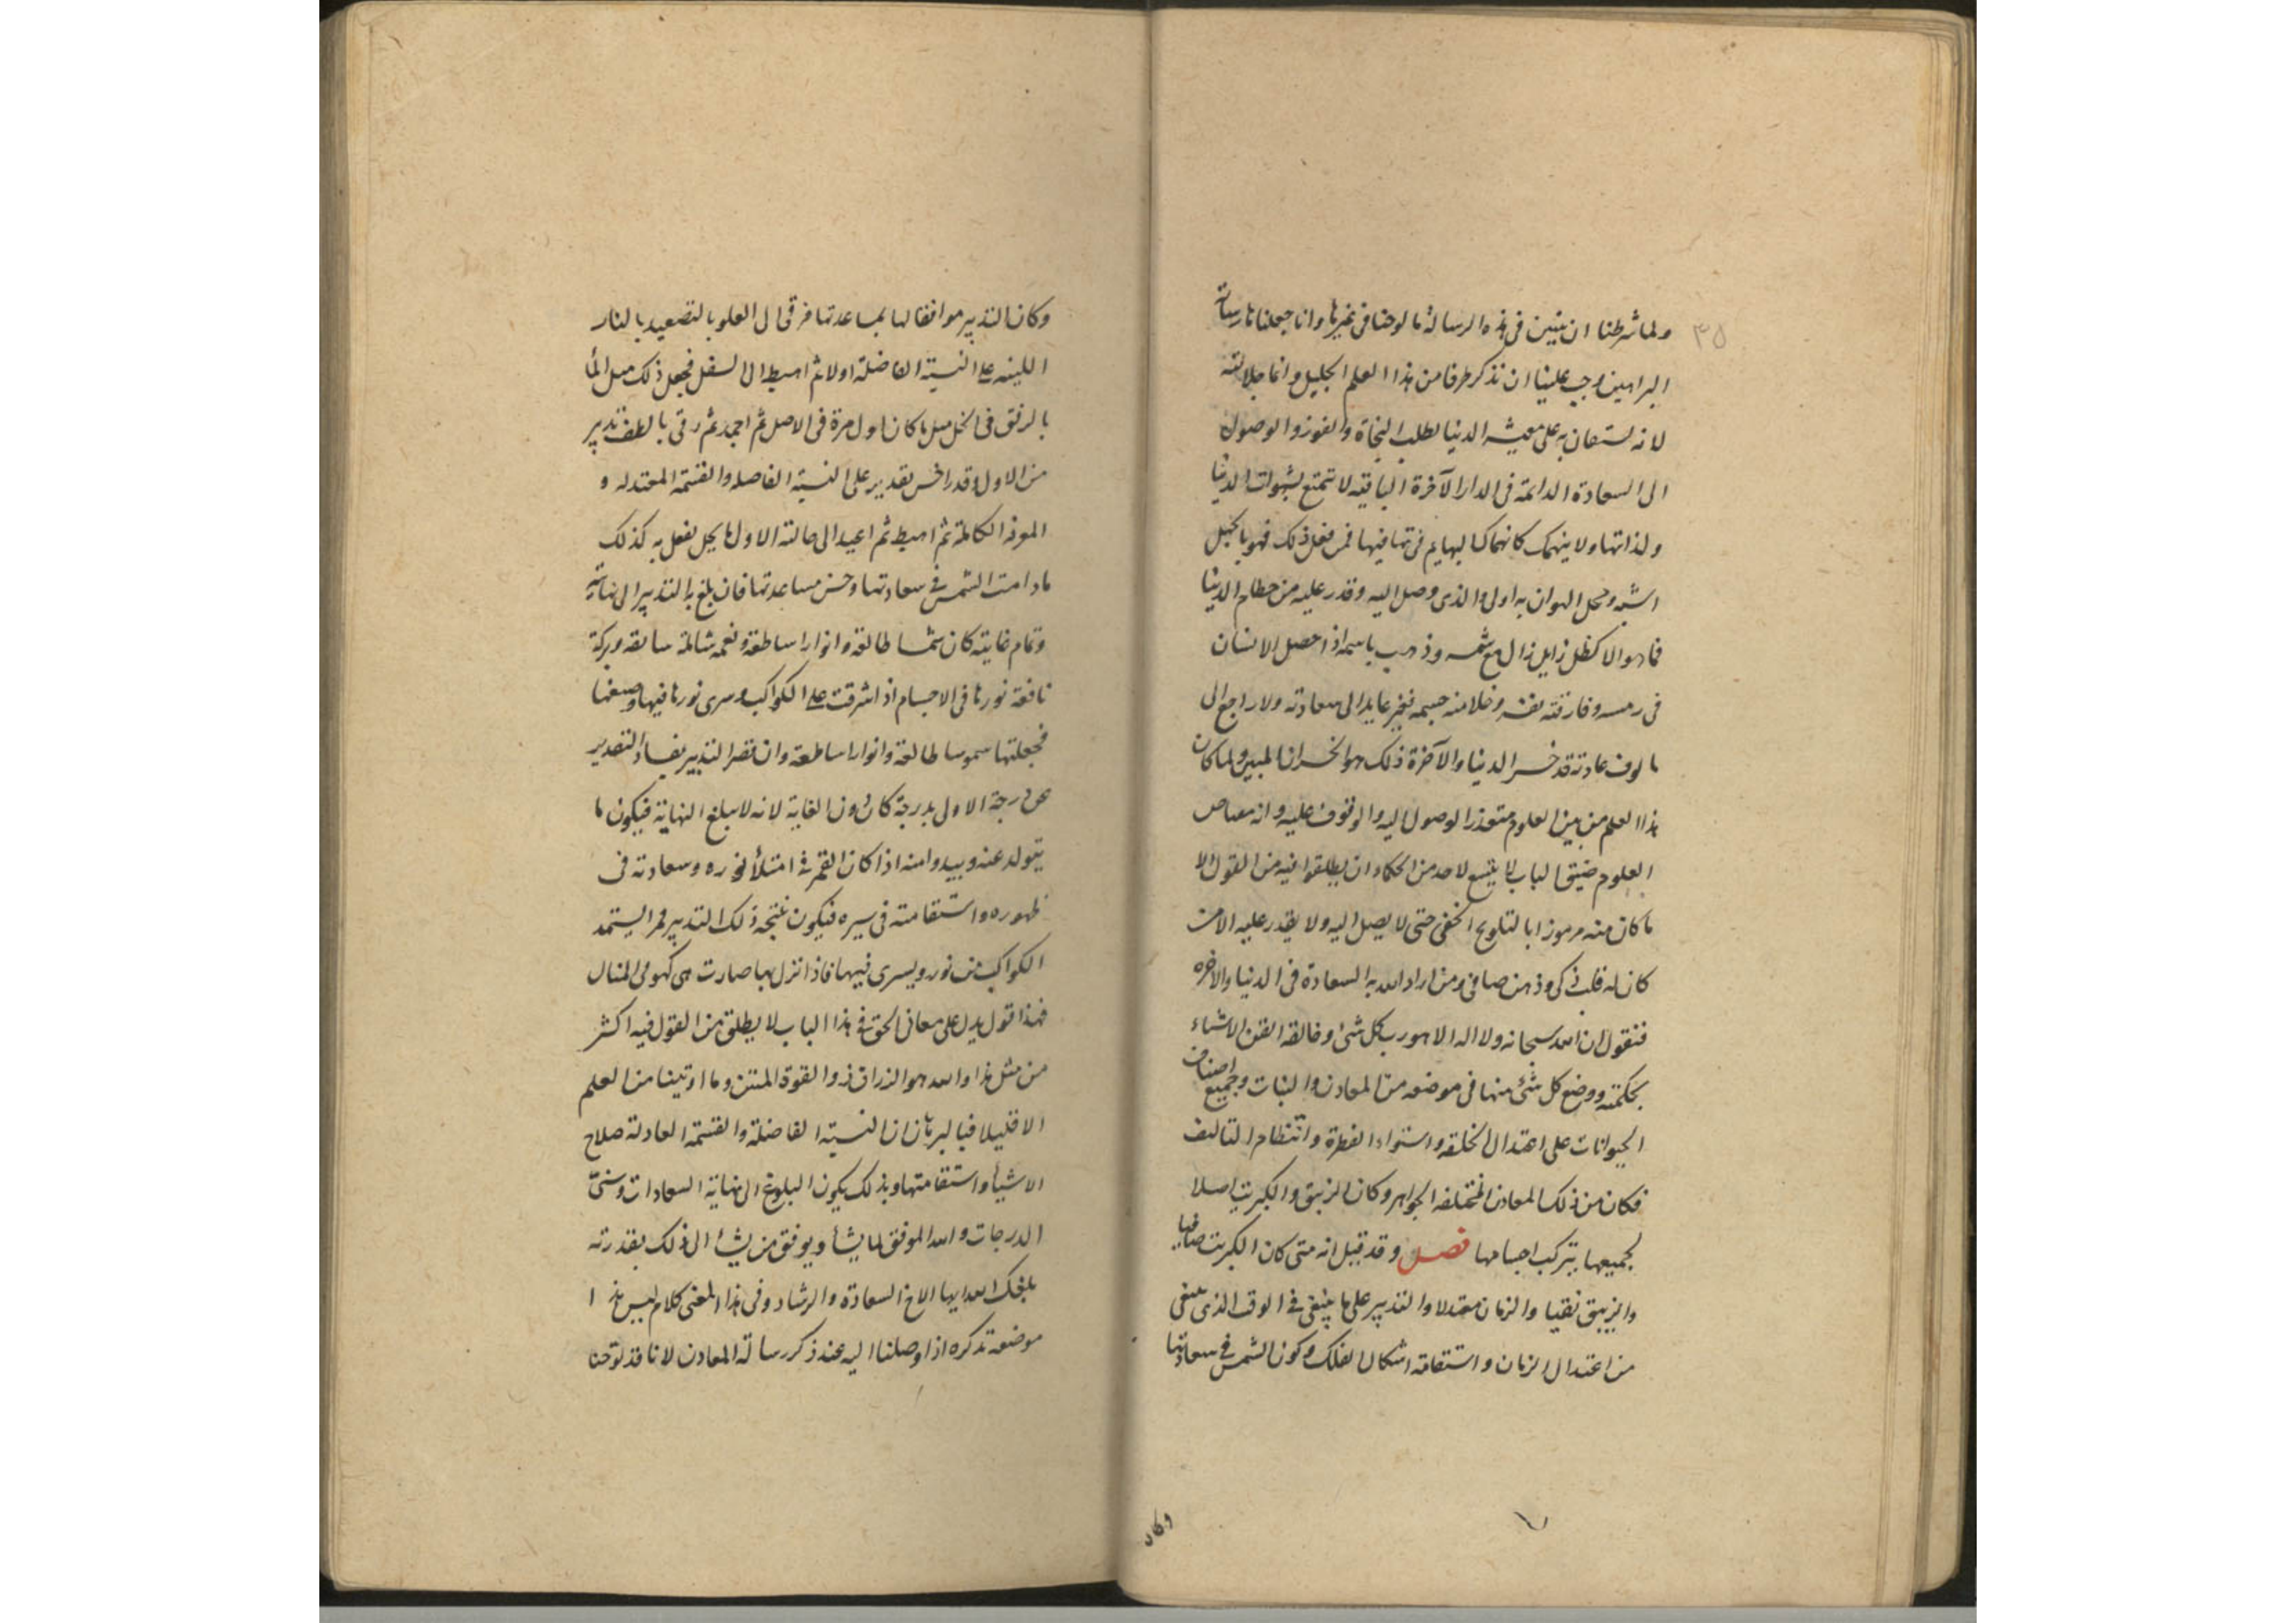 ٣٥
ولما شرطنا ان نبين فى هذه الرسالة ما لوحنا فى غيرها وانا جعلناها رسالة
البراهين وجب علينا ان نذكر طرفا من هذا العلم الجليل وانما جلالته
لانه يستعان به على معيشه الدنيا لطلب النجاة والفوز والوصول
الى السعادة الدائمة فى الدار الآخرة الباقيه لا تتمتع بشهوات الدنيا
ولذاتها ولا ينهمك كانهماك البهايم فى تهافيها فمن فعل ذلك فهو بالجهل
اشبه ومحل الهوان به اولى والذى وصل اليه وقدر عليه من حطام الدنيا
فما هو الا كظل زايل زال مع شمسه وذهب باسمه اذا حصل الانسان
فى رمسه وفارقته نفسه وخلا منه جسمه فغير عايد الى سعادته ولا راجع الى
مالوف عادته قد خسر الدنيا والآخرة ذلك هو الخسران المبين ولما كان
هذا العلم من بين العلوم متعذر الوصول اليه والوقوف عليه وانه معتاص
العلوم ضيق الباب لا يتسع لاحد من الحكماء ان يطلقوا فيه من القول الا
ما كان منه مرموزا بالتلويح الخفى حتى لا يصل اليه ولا يقدر عليه الا من
كان له قلب ذكى وذهن صافى ومن اراد الله به السعادة فى الدنيا والاخره
فنقول ان الله سبحانه ولا اله الا هو رب كل شئ وخالقه اتقن الاشياء
بحكمته ووضع كل شئ منها فى موضعه من المعادن والنبات وجميع اصناف
الحيوانات على اعتدال الخلقه واستواء الفطرة وانتظام التاليف
فكان من ذلك المعادن المختلفه الجواهر وكان الزيبق والكبريت اصلا
لجميعها بتركيب اجسامها فصل وقد قيل انه متى كان الكبريت صافيا
والزيبق نقيا والزمان معتدلا والتدبير على ما ينبغى فى الوقت الذى ينبغى
من اعتدال الزمان واستقامة اشكال الفلك وكون الشمس فى سعادتها
وكان
وكان التدبير موافقا لها بمساعدتها فرقى الى العلو بالتصعيد بالنار
اللينه على النسبة الفاضلة اولا ثم اهبط الى السفل فجعل ذلك مثل الما
بالرفق فى الحل مثل ما كان اول مرة فى الاصل ثم اجمد ثم رقى بالطف تدبير
من الاول وقدر احسن تقدير على النسبة الفاضله والقسمة المعتدله و
الموفه الكاملة ثم اهبط ثم اعيد الى حالته الاولى بحل يفعل به كذلك
ما دامت الشمس فى سعادتها وحسن مساعدتها فان بلغ بالتدبير الى نهايته
وتمام غايته كان شمسا طالعة وانوارا ساطعة ونعمه شاملة سابقه وبركة
نافعة نورها فى الاجسام اذا اشرقت على الكواكب وسرى نورها فيها وصبغها
فجعلتها شموسا طالعة وانوارا ساطعة وان قصر التدبير بفساد التقدير
عن درجة الاولى بدرجة كان دون الغاية لانه لا يبلغ النهاية فيكون ما
يتولد عنه ويبدوا منه اذا كان القمر فى امتلأ نوره وسعادته فى
ظهوره واستقامته فى سيره فيكون نتيجه ذلك التدبير قمرا يستمد
الكواكب من نوره ويسرى فيها فاذا نزل بها صارت هى كهو فى المثال
فهذا قول يدل على معانى الحق فى هذا الباب لا يطلق من القول فيه اكثر
من مثل هذا والله هو الرزاق ذو القوة المتين وما اوتينا من العلم
الا قليلا فبالبرهان ان النسبة الفاضلة والقسمة العادلة صلاح
الاشيأ واستقامتها وبذلك يكون البلوغ الى نهاية السعادات وسنىّ
الدرجات والله الموفق لما يشأ ويوفق من يشأ الى ذلك بقدرته
بلغك الله ايها الاخ السعادة والرشاد وفى هذا المعنى كلام ليس هذا
موضعه تذكره اذا وصلنا اليه عند ذكر رسالة المعادن لانا قد لوّحنا